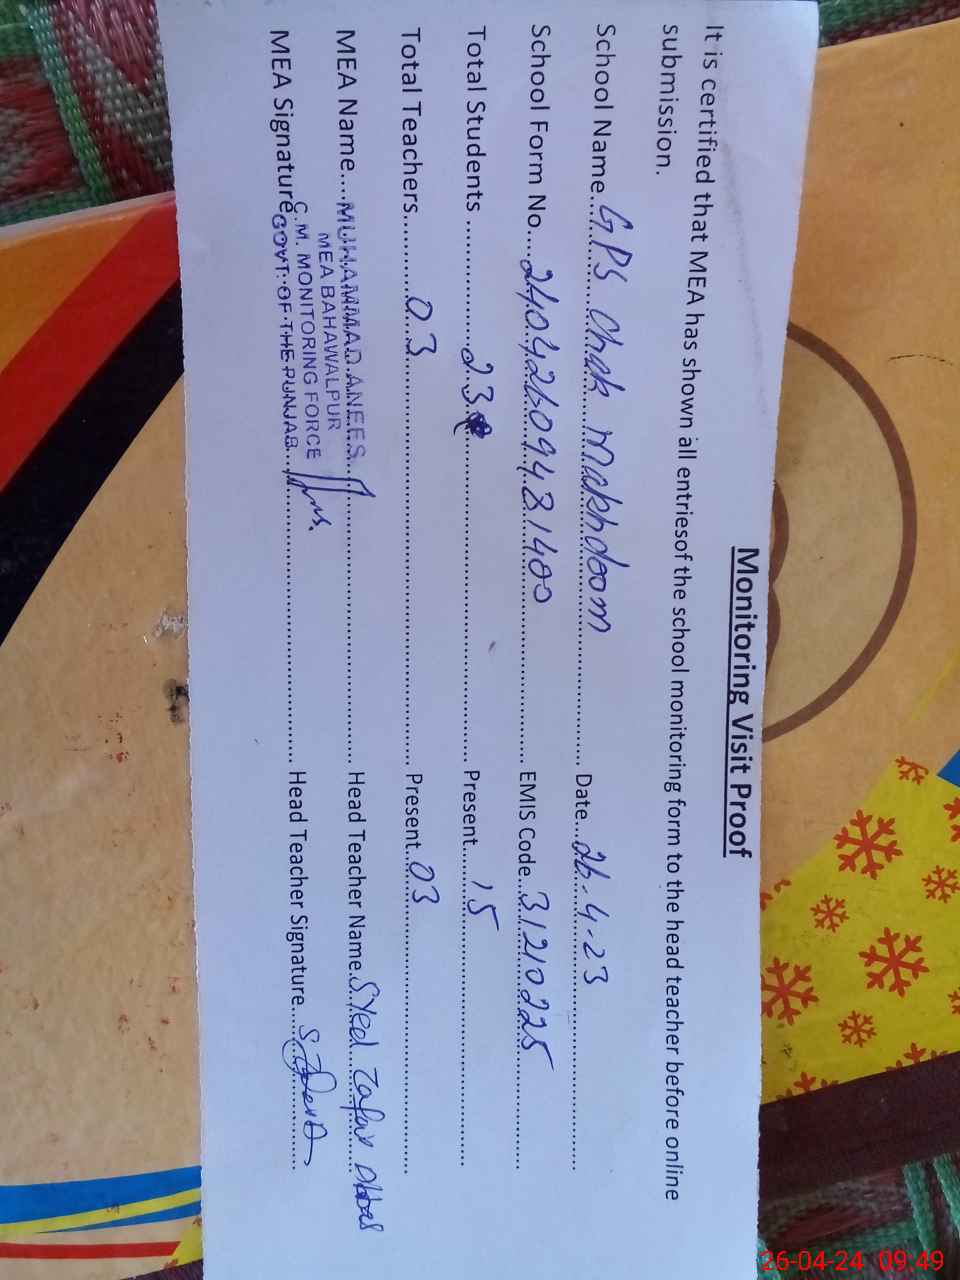 Monitoring Visit Proof
It is certified that MEA has shown all entriesof the school monitoring form to the head teacher before online
submission.
School Name....GPS Chak Makhdoom.... Date....26-4-23....
School Form No....2404260948 1400.... EMIS Code....31210225....
Total Students ....23.... Present....15....
Total Teachers....03.... Present....03....
MEA Name....MUHAMMAD ANEES.... Head Teacher Name.Syed Zafar Abbas
MEA BAHAWALPUR
C.M. MONITORING FORCE
MEA Signature GOVT: OF THE PUNJAB.... Head Teacher Signature....
26-04-24 09:49